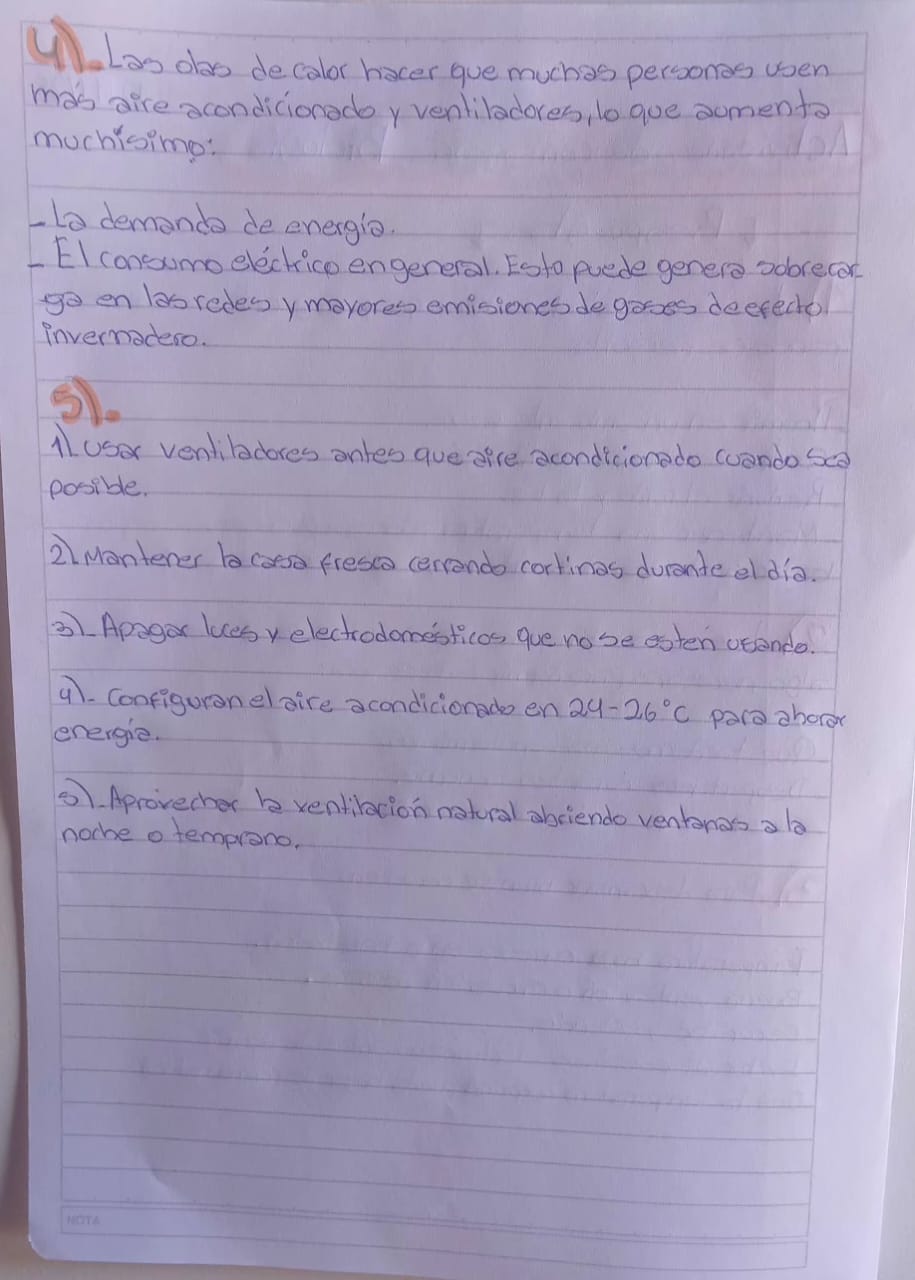 4)- Las olas de calor hacer que muchas personas usen
más aire acondicionado y ventiladores, lo que aumenta
muchísimo:
- La demanda de energía.
- El consumo eléctrico en general. Esto puede genera sobrecar-
ga en las redes y mayores emisiones de gases de efecto
invernadero.
5).
1)- Usar ventiladores antes que aire acondicionado cuando sea
posible.
2)- Mantener la casa fresca cerrando cortinas durante el día.
3)- Apagar luces y electrodomésticos que no se estén usando.
4)- Configuran el aire acondicionado en 24-26°C para ahorar
energía.
5)- Aprovechar la ventilación natural abriendo ventanas a la
noche o temprano.
NOTA